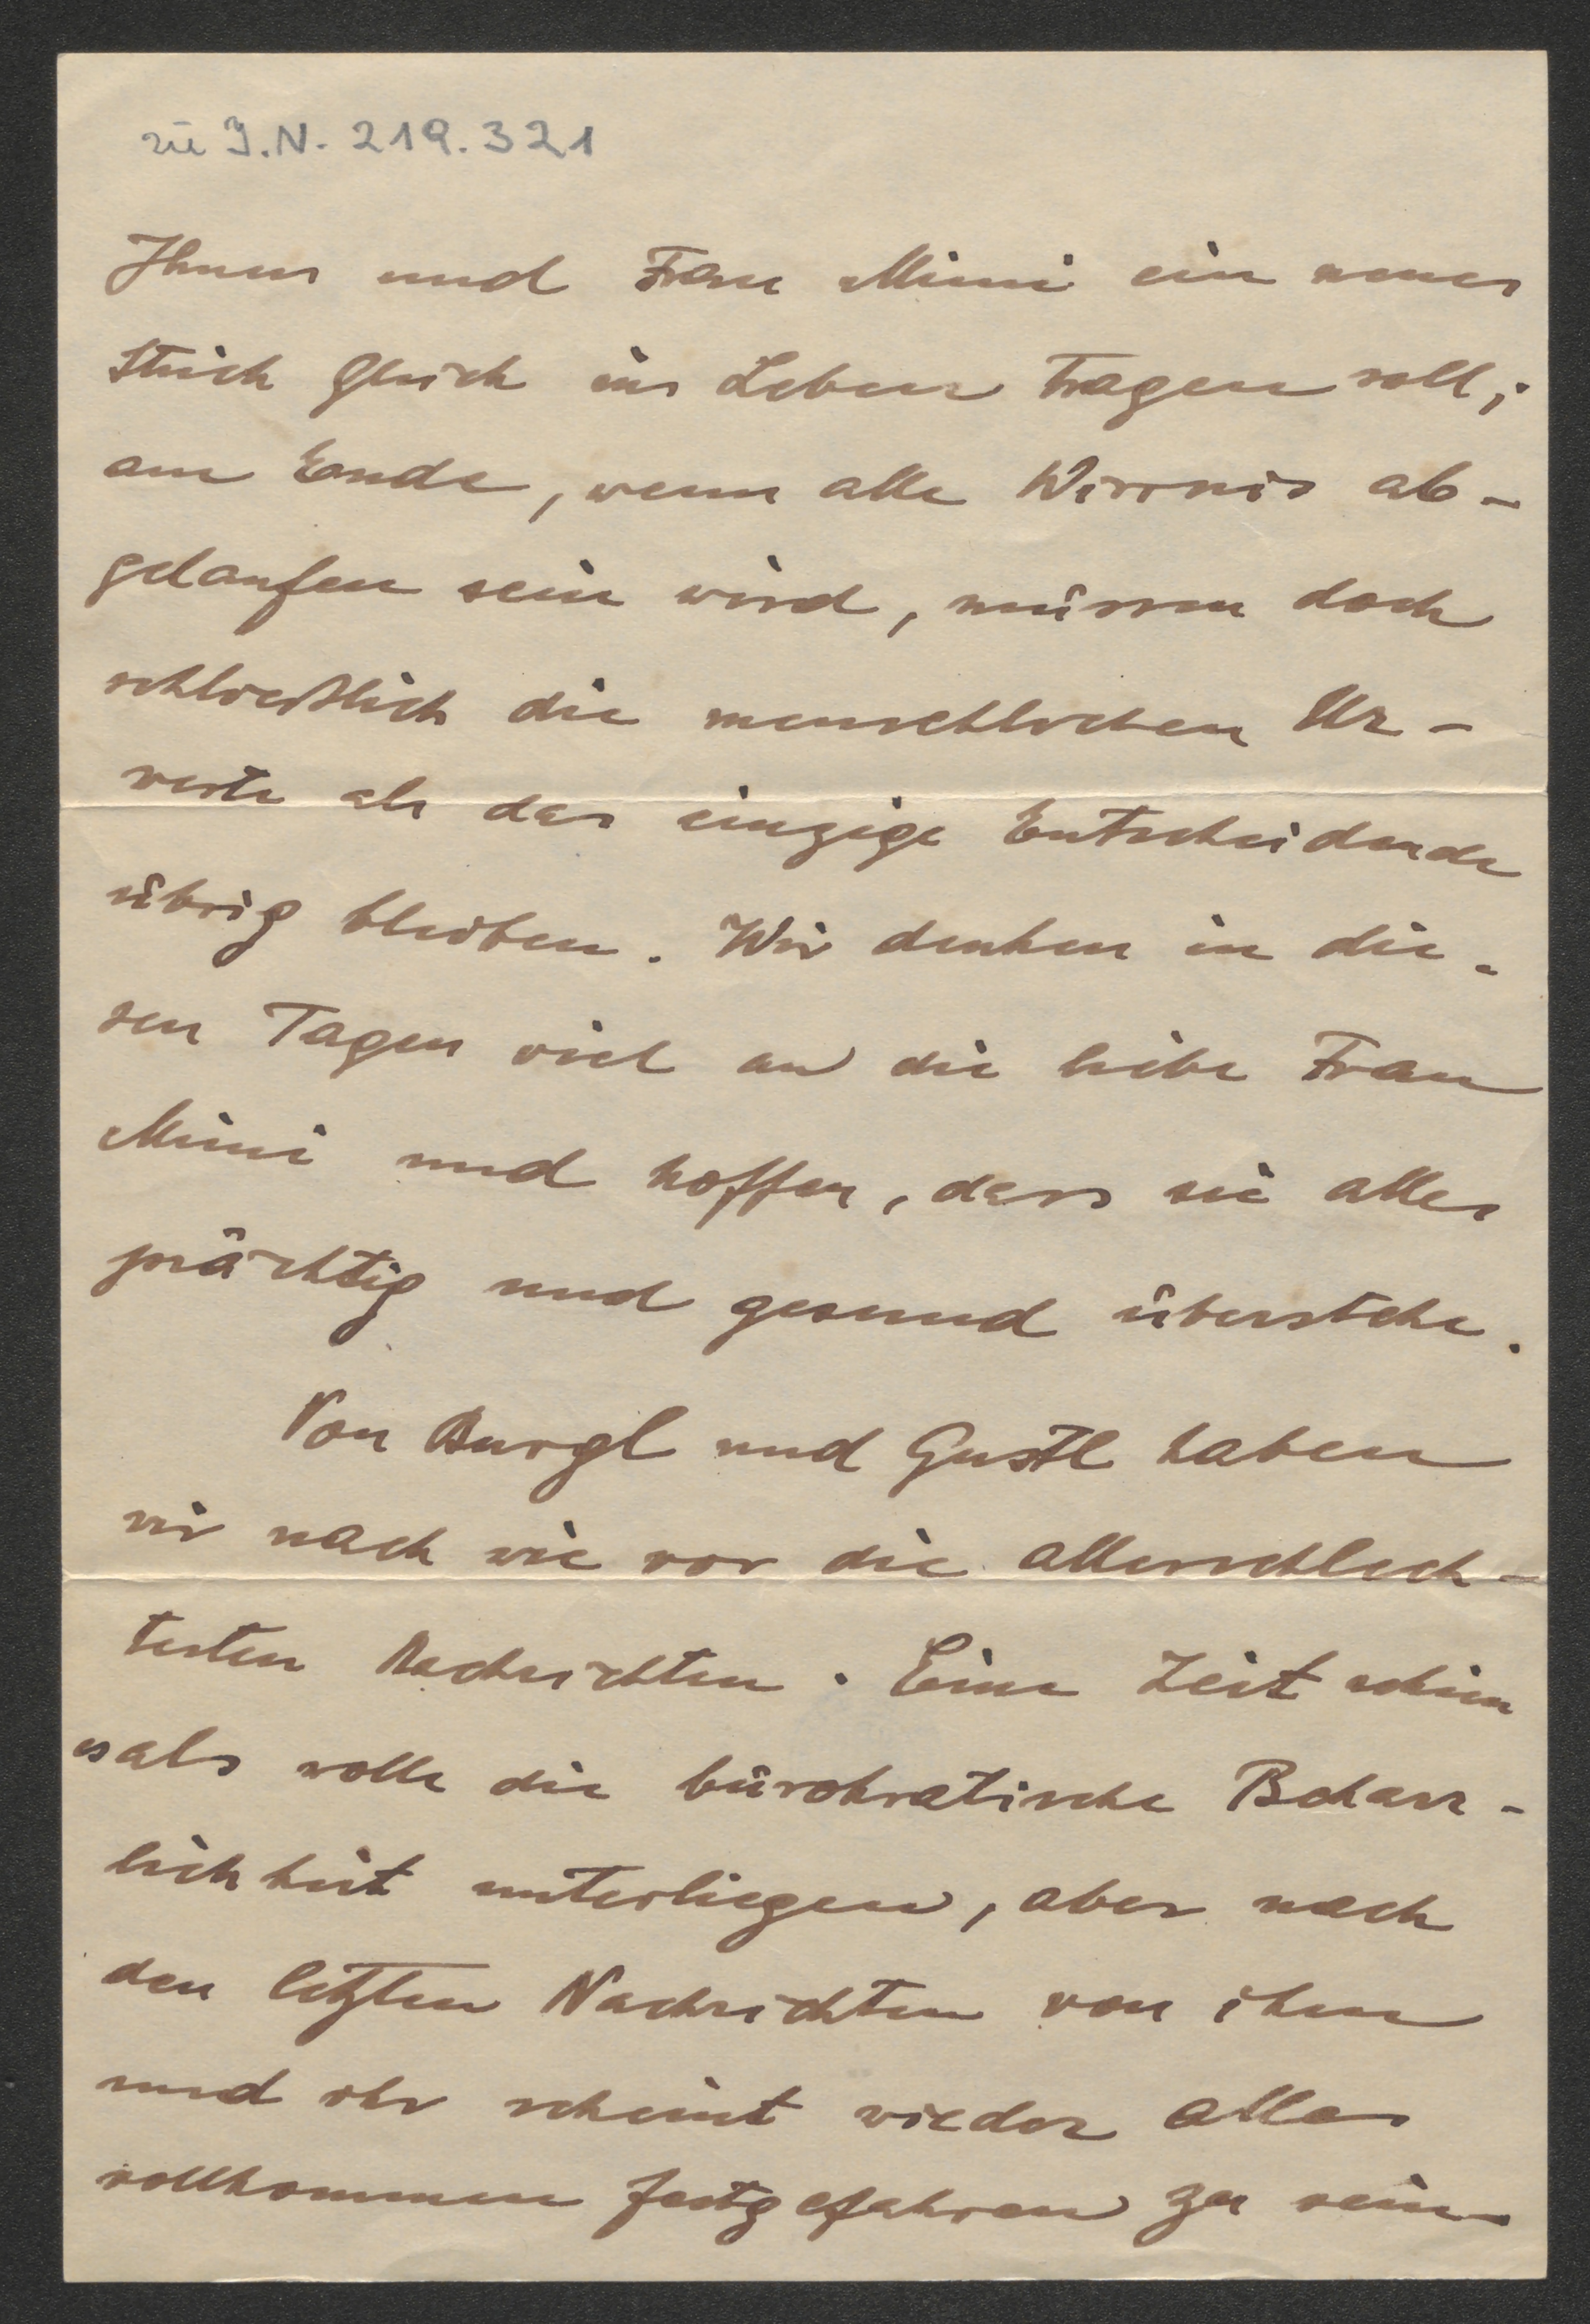 zu I.N. 219.321
Ihnen und Frau Mimi ein neues
Stück Glück ins Leben tragen soll;
am Ende, wenn alle Wirrnis ab-
gelaufen sein wird, müssen doch
schließlich die menschlichen Ur-
werte als das einzige Entscheidende
übrig bleiben. Wir denken in die-
sen Tagen viel an die liebe Frau
Mimi und hoffen, dass sie alles
prächtig und gesund überstehe.
Von Burgl und Gustl haben
wir nach wie vor die allerschlech-
testen Nachrichten. Eine Zeit schien
es als wolle die bürokratische Beharr-
lichkeit unterliegen, aber nach
den letzten Nachrichten von ihm
und ihr scheint wieder alles
vollkommen festgefahren zu sein